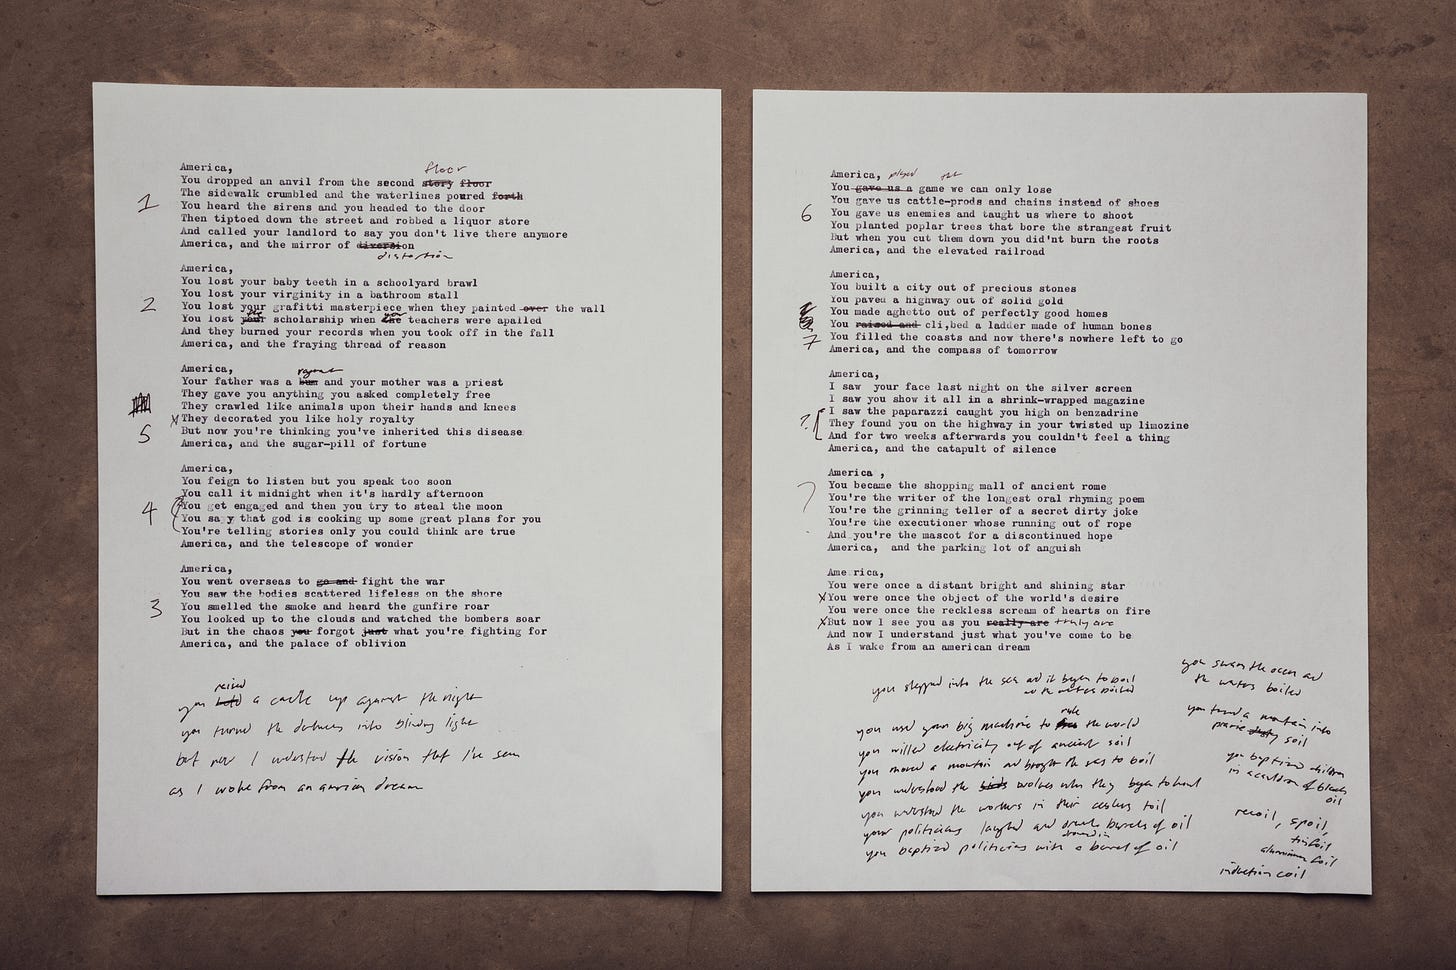 America,
floor
You dropped an anvil from the second story floor
The sidewalk crumbled and the waterlines poured forth
1
You heard the sirens and you headed to the door
Then tiptoed down the street and robbed a liquor store
And called your landlord to say you don't live there anymore
America, and the mirror of diversion
distortion
America,
You lost your baby teeth in a schoolyard brawl
You lost your virginity in a bathroom stall
2
You lost your grafitti masterpiece when they painted over the wall
You lost your scholarship when the teachers were apalled
And they burned your records when you took off in the fall
America, and the fraying thread of reason
America,
Your father was a bum and your mother was a priest
They gave you anything you asked completely free
They crawled like animals upon their hands and knees
x They decorated you like holy royalty
5
But now you're thinking you've inherited this disease
America, and the sugar-pill of fortune
America,
You feign to listen but you speak too soon
You call it midnight when it's hardly afternoon
4
You get engaged and then you try to steal the moon
You sa y that god is cooking up some great plans for you
You're telling stories only you could think are true
America, and the telescope of wonder
America,
You went overseas to go and fight the war
You saw the bodies scattered lifeless on the shore
3
You smelled the smoke and heard the gunfire roar
You looked up to the clouds and watched the bombers soar
But in the chaos you forgot just what you're fighting for
America, and the palace of oblivion
raised
you a castle up against the night
you turned the darkness into blinding light
but now I understand the vision that I've seen
as I woke from an american dream
America,
played the
You gave us a game we can only lose
You gave us cattle-prods and chains instead of shoes
6
You gave us enemies and taught us where to shoot
You planted poplar trees that bore the strangest fruit
But when you cut them down you did'nt burn the roots
America, and the elevated railroad
America,
You built a city out of precious stones
You paved a highway out of solid gold
You made aghetto out of perfectly good homes
You raised and cli,bed a ladder made of human bones
7
You filled the coasts and now there's nowhere left to go
America, and the compass of tomorrow
America,
I saw  your face last night on the silver screen
I saw you show it all in a shrink-wrapped magazine
I saw the paparazzi caught you high on benzadrine
?
They found you on the highway in your twisted up limozine
And for two weeks afterwards you couldn't feel a thing
America, and the catapult of silence
America ,
You became the shopping mall of ancient rome
?
You're the writer of the longest oral rhyming poem
You're the grinning teller of a secret dirty joke
You're the executioner whose running out of rope
And you're the mascot for a discontinued hope
America,  and the parking lot of anguish
America,
You were once a distant bright and shining star
x You were once the object of the world's desire
You were once the reckless scream of hearts on fire
x But now I see you as you really are truly are
And now I understand just what you've come to be
As I wake from an american dream
you stepped into the sea and it began to boil
and the waters boiled
you swam the ocean and
the waters boiled
rule
you used your big machine to the world
you willed electricity out of ancient soil
you moved a mountain and brought the seas to boil
you understood the wolves when they began to howl
you understand the workers in their ceaseless toil
your politicians laughed and drank barrels of oil
drowned in
you baptized politicians with a barrel of oil
you turned a mountain into
prairie dusty soil
you baptized children
in a cauldron of black
oil
recoil, spoil,
tinfoil
aluminum foil
induction coil